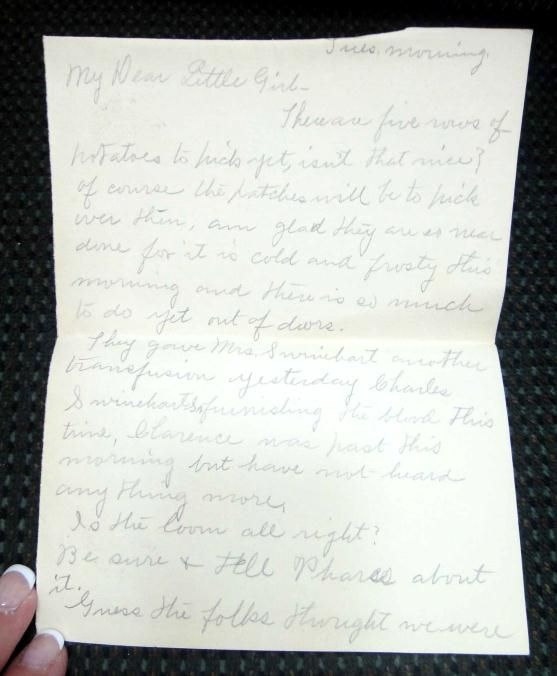 Tues. morning.
My Dear Little Girl-
There are five rows of
potatoes to pick yet, isn't that nice?
of course the patches will be to pick
over then, am glad they are so near
done for it is cold and frosty this
morning and there is so much
to do yet out of doors.
They gave Mrs. Swinehart another
transfusion yesterday Charles
Swinehart furnishing the blood this
time, Clarence was past this
morning but have not heard
any thing more,
Is the loom all right?
Be sure & tell Phares about
it.
Guess the folks thought we were